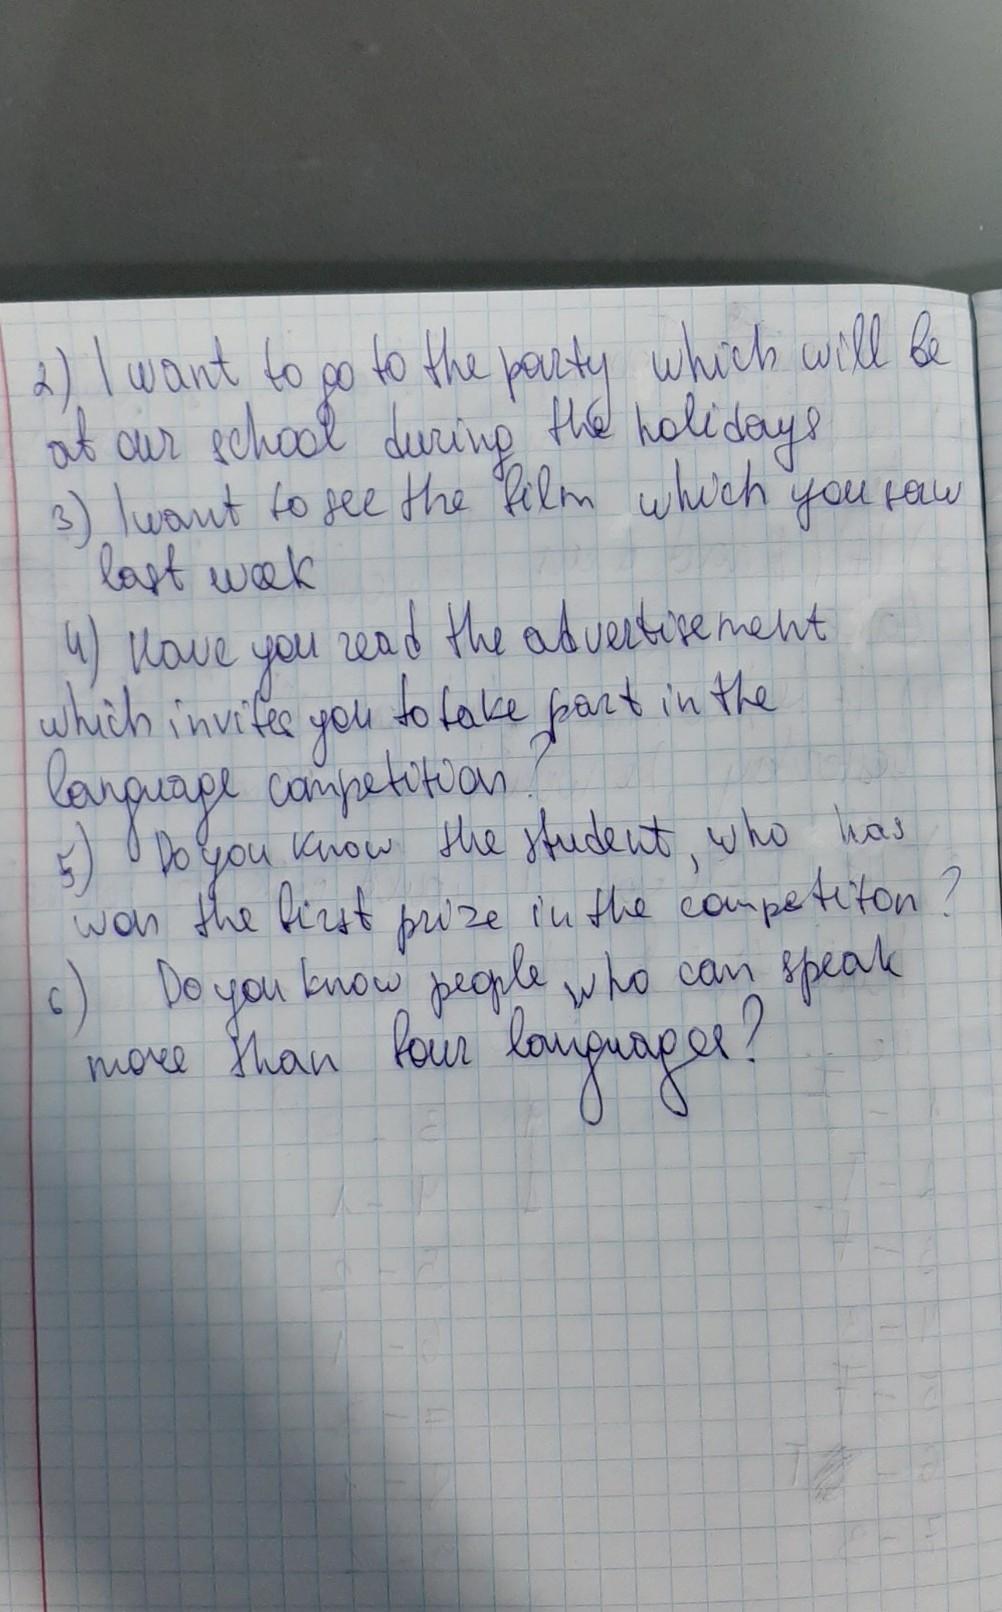 2) I want to go to the party which will be
at our school during the holidays
3) I want to see the film which you saw
last week
4) Have you read the advertisement
which invites you to take part in the
language competition?
5) Do you know the student, who has
won the first prize in the competiton?
6) Do you know people, who can speak
more than four languages?